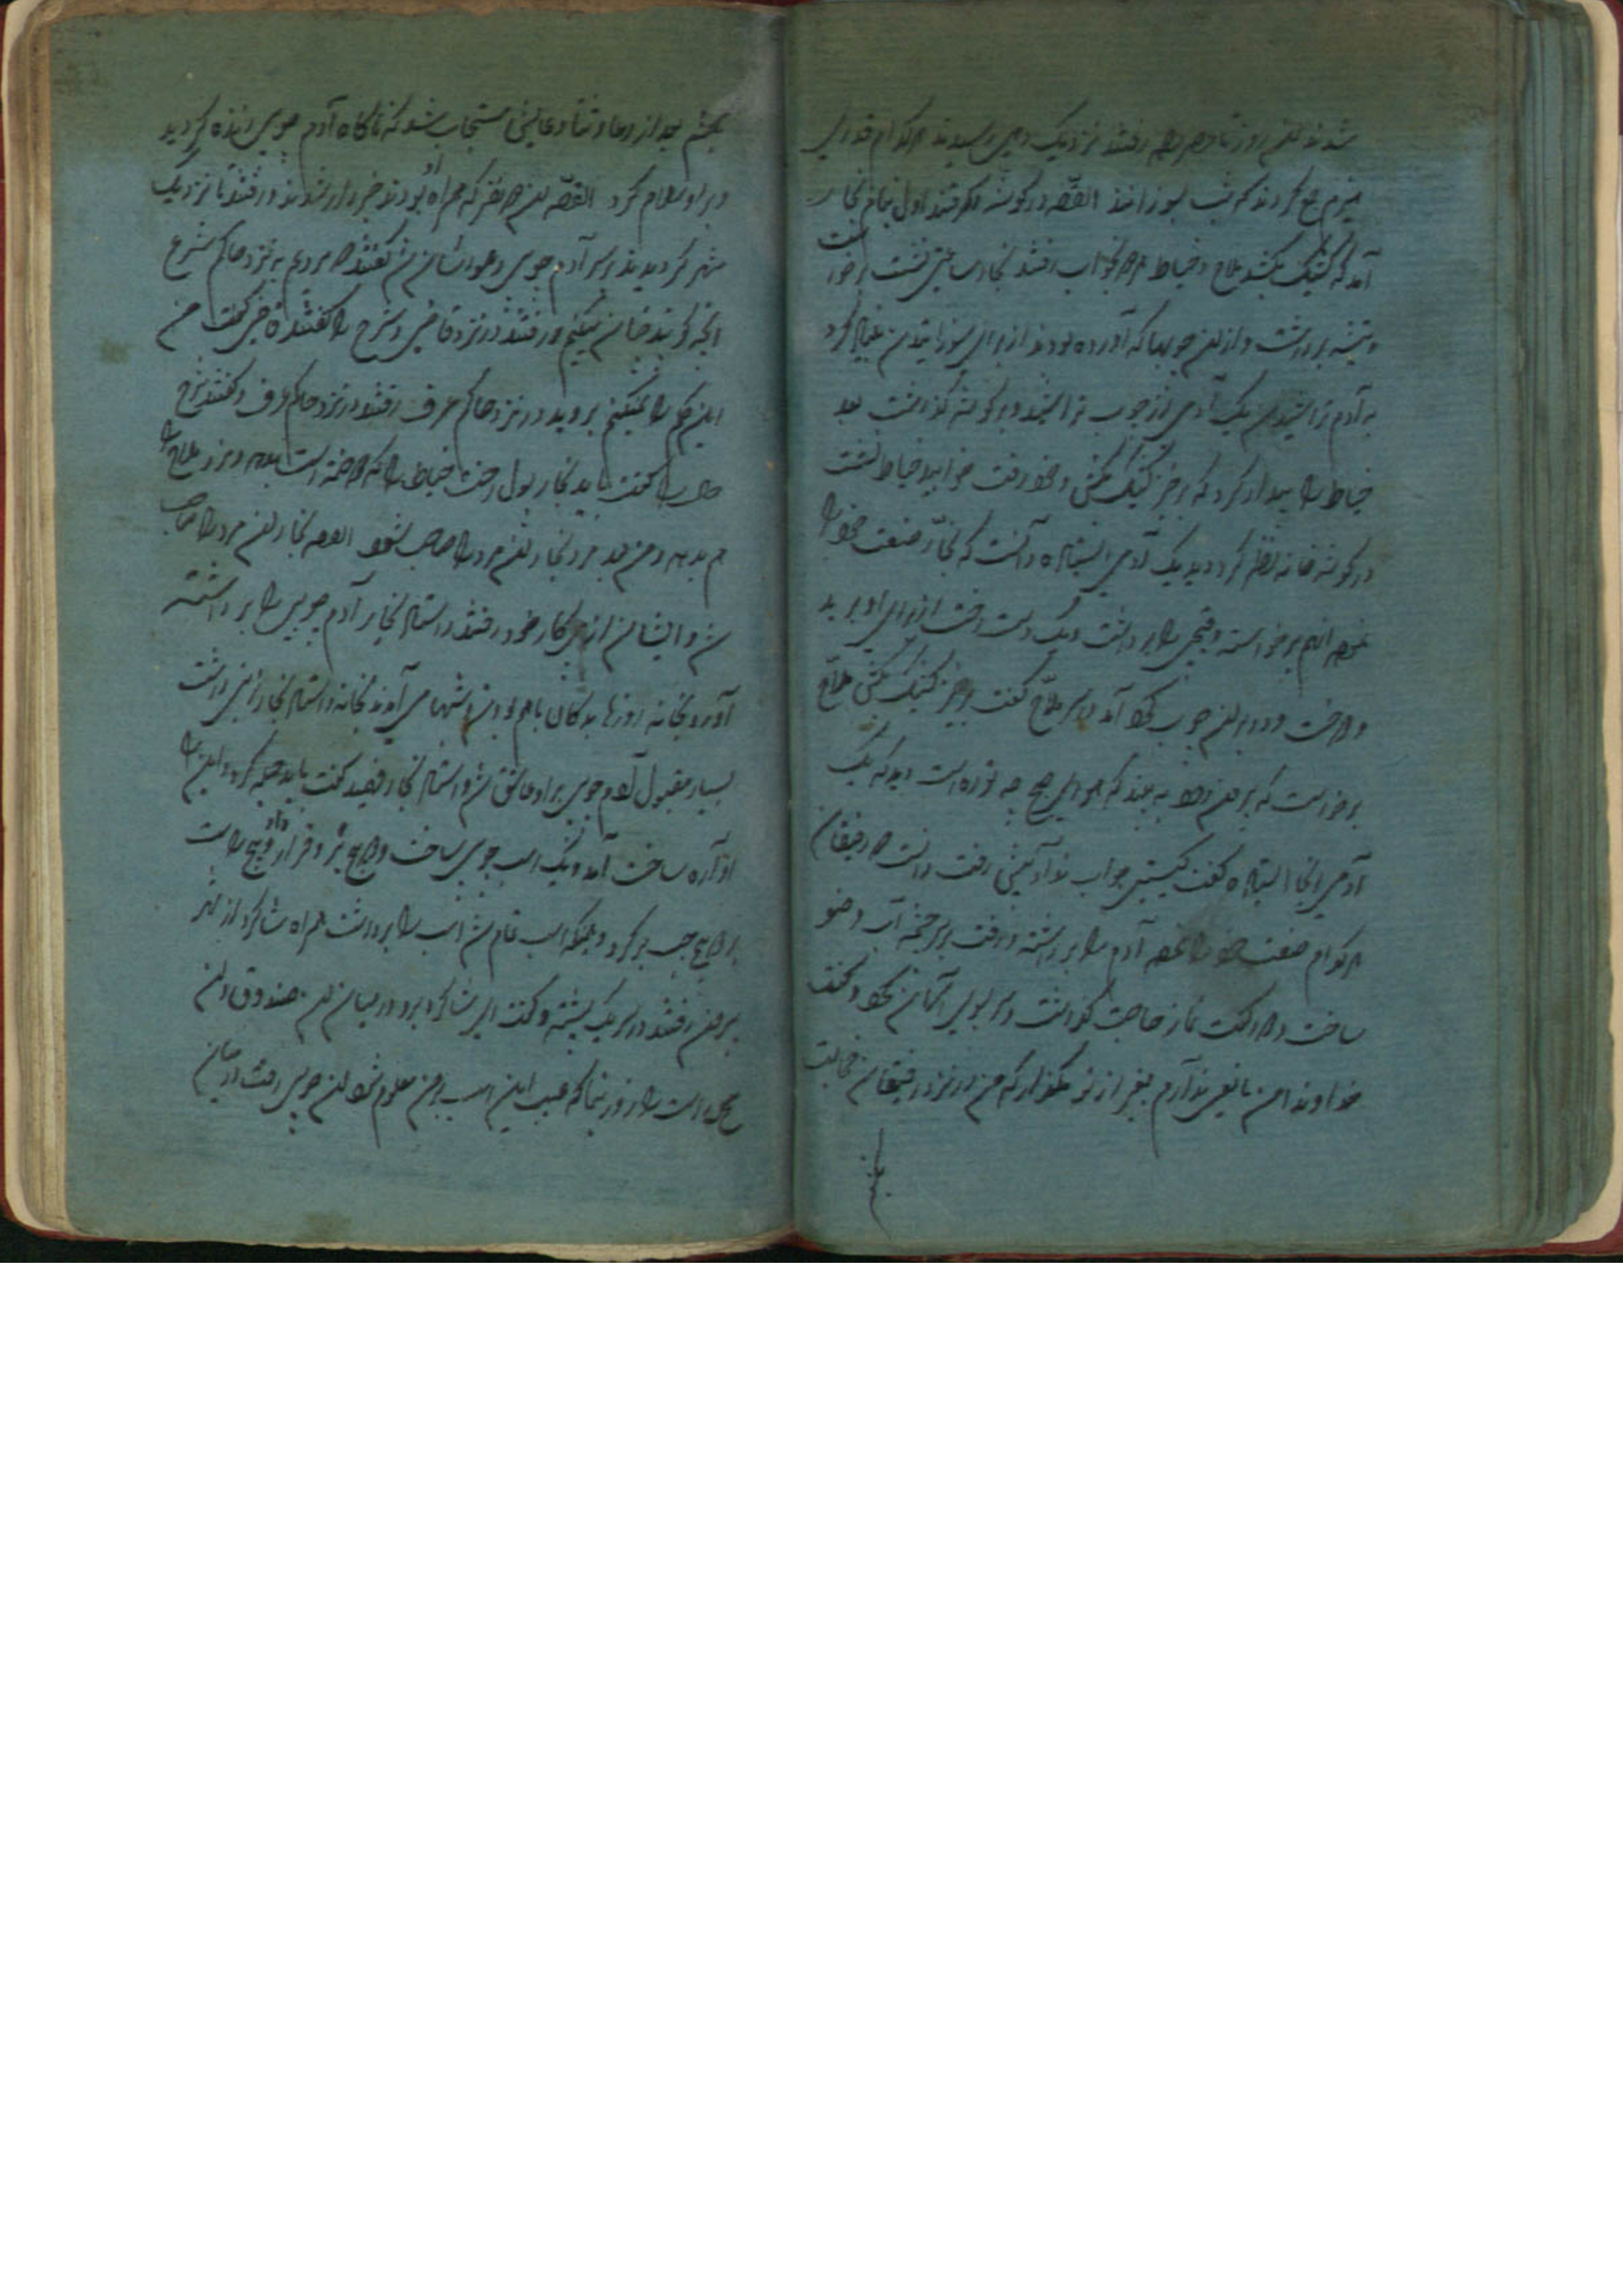 شدند آن روز تا عصر راه رفتند نزدیک دهی رسیدند هر کدام قدری
هیزم جمع کردند که شب بسوزانند القصّه در گوشه قرار گرفتند اول بنام نجار
آمد که کشیک بکشد ملا و خیاط هر دو بخواب رفتند نجار ساعتی نشست برخواست
و تیشه برداشت و از آن چوبها که آورده بودند از برای سوزانیدن بنا کرد
به آدم تراشیدن یک آدمی از چوب تراشید و در گوشه گذاشت بعد
خیاط را بیدار کرد که برخیز کشیک بکش و خود رفت خوابید خیاط نشست
در گوشه خانه نظر کرد دید یک آدمی ایستاده دانست که نجّار صنعت خود را
نموده انهم برخواسته و قیچی را برداشت و یک دست رخت از برای او برید
و دوخت و در بر آن چوب کرد آمد بر سر ملّا گفت برخیز کشیک بکش ملّا
برخواست که بیرون رود به بیند که هوای صبح چه نوره است دید که یک
آدمی آنجا ایستاده گفت کیستی جواب نداد پیش رفت دانست که رفیقان
هر کدام صنعت خود را نموده آدم را برداشته و رفت بر سر چشمه آب وضو
ساخت و دو رکعت نماز حاجت گذاشت و سر بسوی آسمان کرد و گفت
خداوندا من مانعی ندارم بغیر از تو مگذار که من در نزد رفیقان خجالت
بکشم
بکشم بعد از دعا و ثنا دعایش مستجاب شد که ناگاه آدم چوبی زنده گردید
و بر او سلام کرد القصّه آن دو نفر که همراه او بودند خبردار شدند و رفتند تا نزدیک
شهر گردیدند بر سر آدم چوبی دعواشان شد گفتند که برویم به نزد حاکم شرع
آنچه گوید چنان میکنیم و رفتند در نزد قاضی و شرح را گفتند قاضی گفت من
این حکم را نمیکنم بروید در نزد حاکم عرف رفتند در نزد حاکم عرف و گفتند شرح
حال را گفت باید نجار پول رخت خیاط را که دوخته است بدهد و مزد ملا را
هم بدهد و من بعد مرد نجار آن مرد را صاحب شود القصه نجار آن مرد را صاحب
شد و ایشان از پی کار خود رفتند و استاد نجار آدم چوبی را برداشته
آورد بخانه روزها بدکان باهم بودند و شبها می آمدند بخانه و استاد نجار زنی داشت
بسیار مقبول آدم چوبی بر او عاشق شد و استاد نجار فهمید گفت باید حیله کرد و این را
آواره ساخت آمد و یک اسب چوبی ساخت و در پیچ او قرار داد و پیچ راست
و پیچ چپ بر کرد و همینکه اسب تمام شد اسب را برداشت همراه شاگرد از شهر
بیرون رفتند در سر یک پشته و گفت ای شاگرد برو در میان آن صندوق و آن
پیچ راست را زور بنما که عیب این اسب بر من معلوم شود آن چوبی رفت در میان